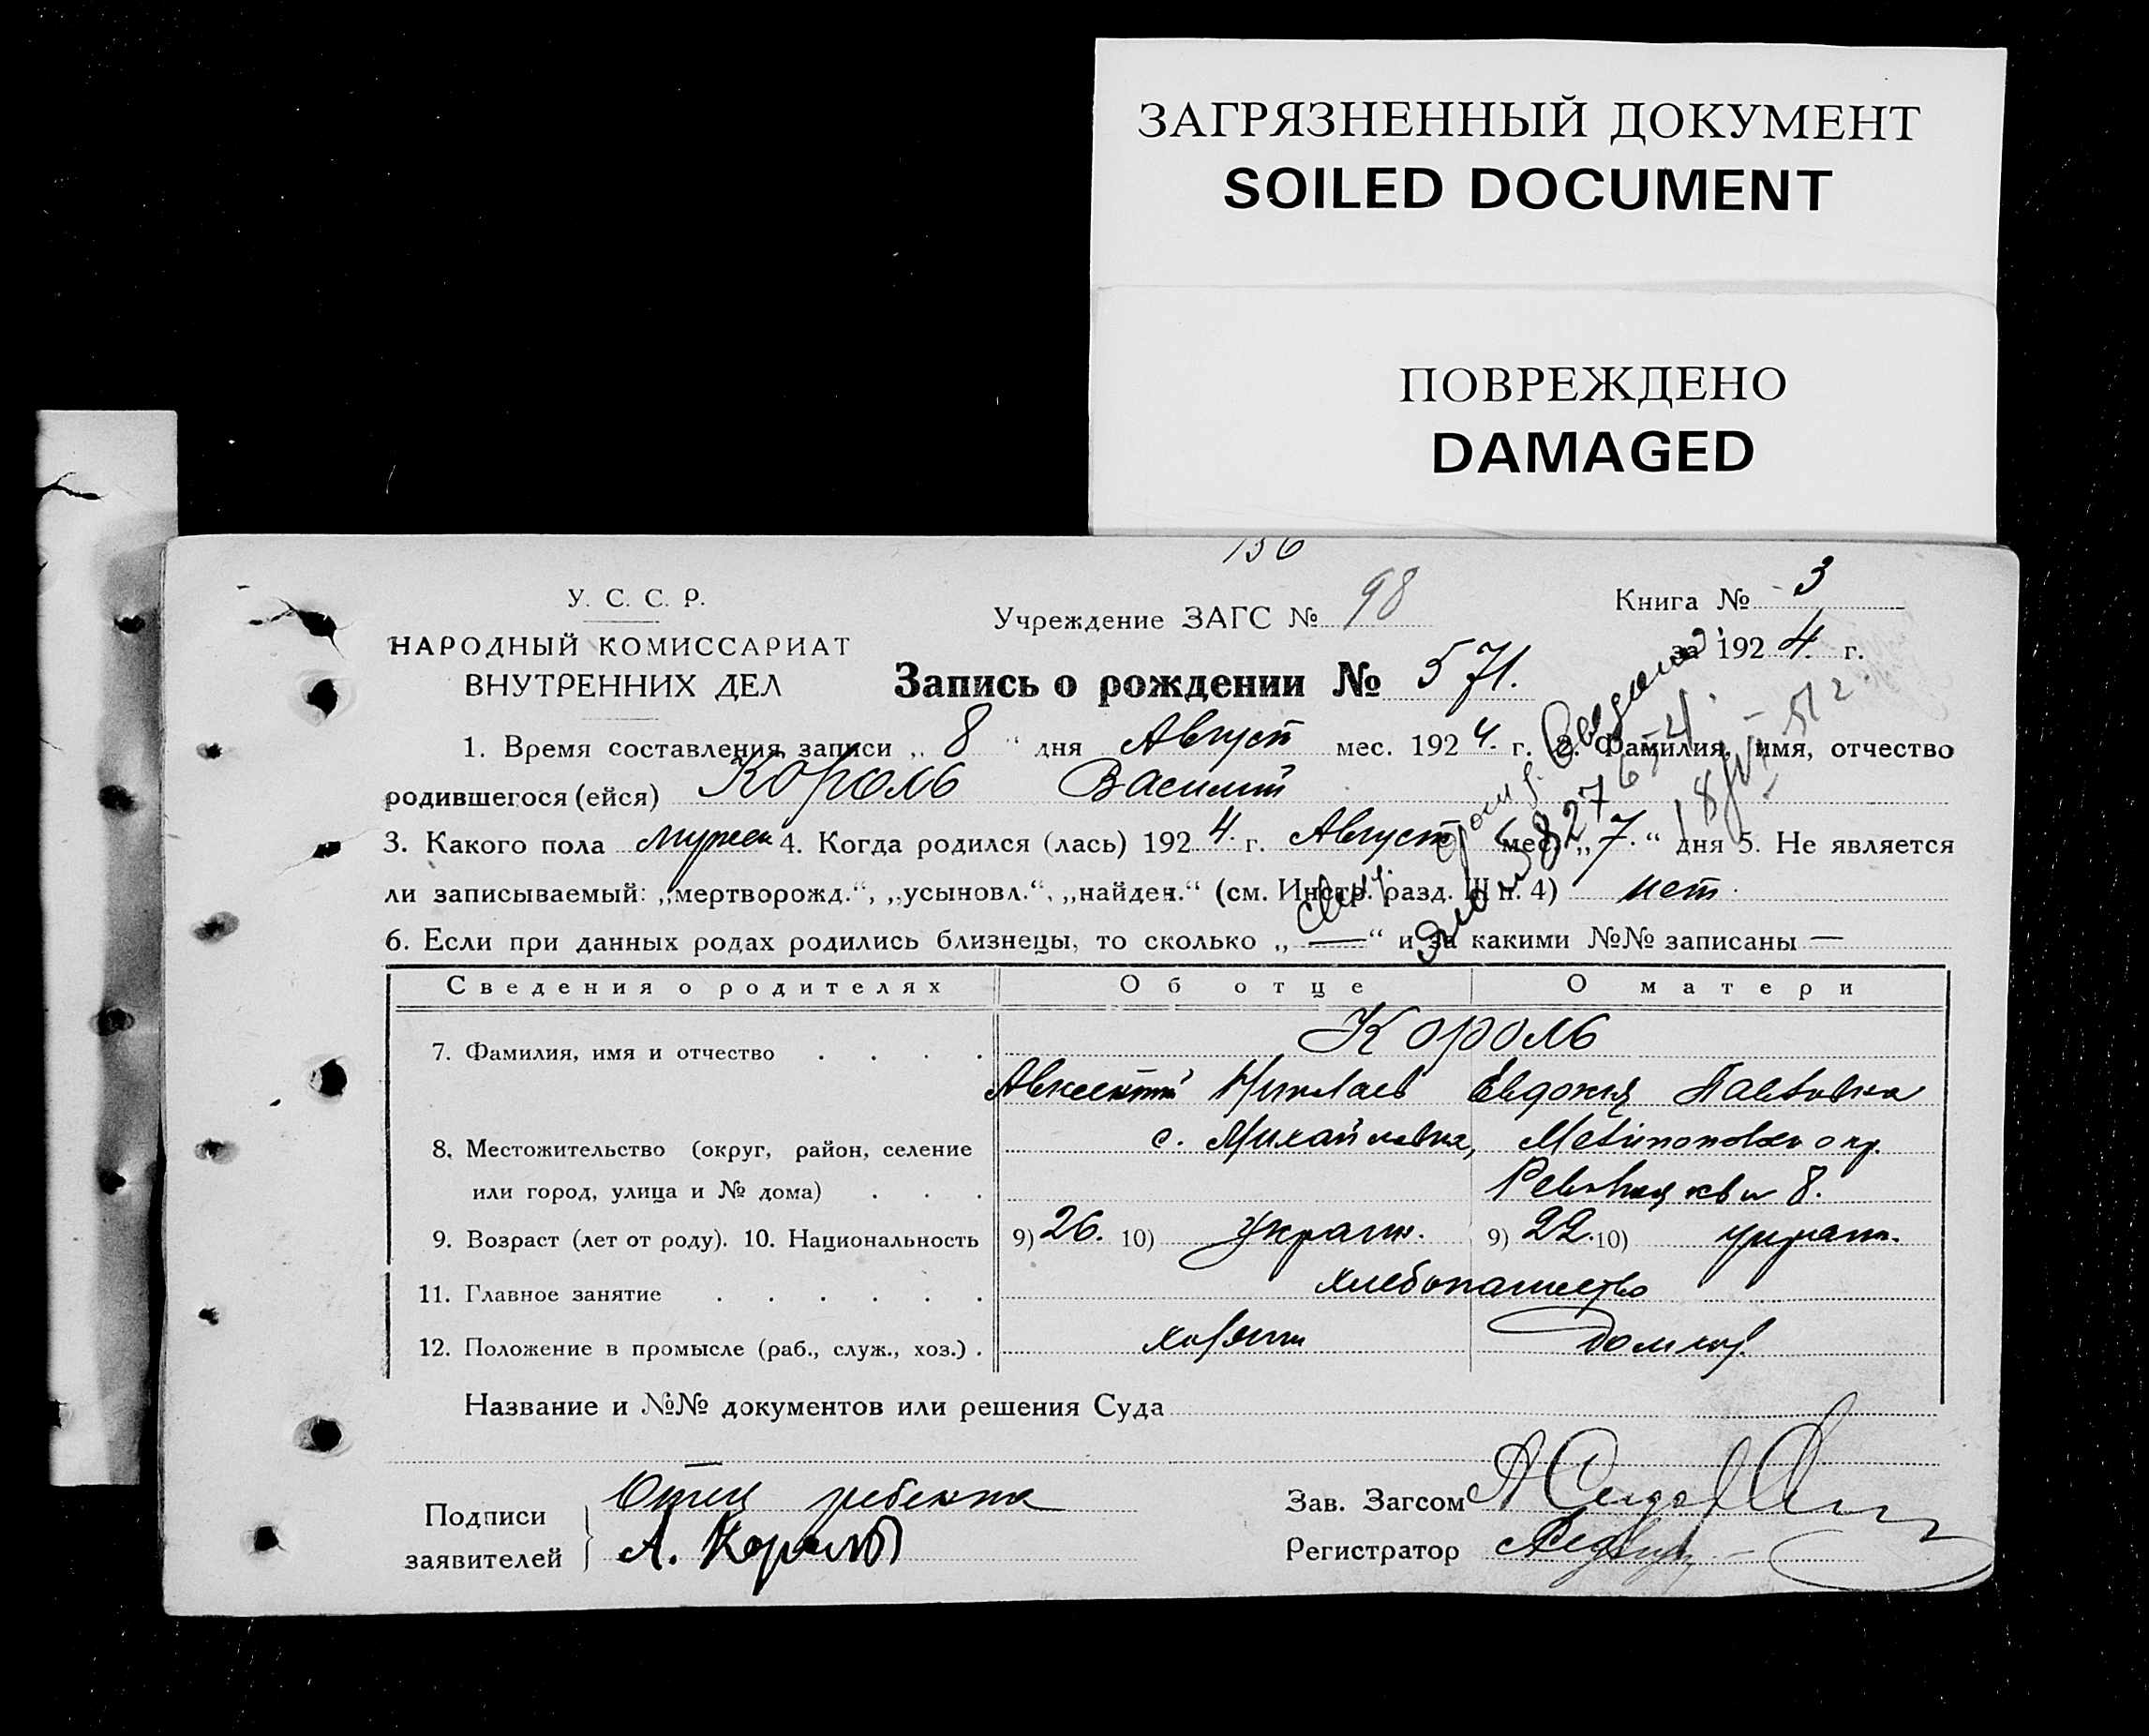 ЗАГРЯЗНЕННЫЙ ДОКУМЕНТ
SOILED DOCUMENT
ПОВРЕЖДЕНО
DAMAGED
136
У. С. С. Р.
НАРОДНЫЙ КОМИССАРИАТ
ВНУТРЕННИХ ДЕЛ
Учреждение ЗАГС № 98
Книга № 3
за 1924 г.
Запись о рождении № 571.
1. Время составления записи „ 8 “ дня Август мес. 1924. г. 2. Фамилия, имя, отчество
родившегося (ейся) Король Василий
3. Какого пола мужск 4. Когда родился (лась) 1924. г. Август мес. „7.“ дня 5. Не является
ли записываемый: „мертворожд.“, „усыновл.“, „найден.“ (см. Инстр. разд. III п. 4) нет.
6. Если при данных родах родились близнецы, то сколько „ — “ и за какими №№ записаны —
Сведения о родителях Об отце О матери
7. Фамилия, имя и отчество . . . . Король
Авксентий Николаев Евдокия Павловна
8. Местожительство (округ, район, селение с. Михайловка, окр.
или город, улица и № дома) . . . 8.
9. Возраст (лет от роду). 10. Национальность 9) 26. 10) Украин. 9) 22. 10) украин.
11. Главное занятие . . . . . . хлебопашество
12. Положение в промысле (раб., служ., хоз.) . хозяин домхоз.
Название и №№ документов или решения Суда
Подписи заявителей } Отец ребенка
А. Король
Зав. Загсом
Регистратор